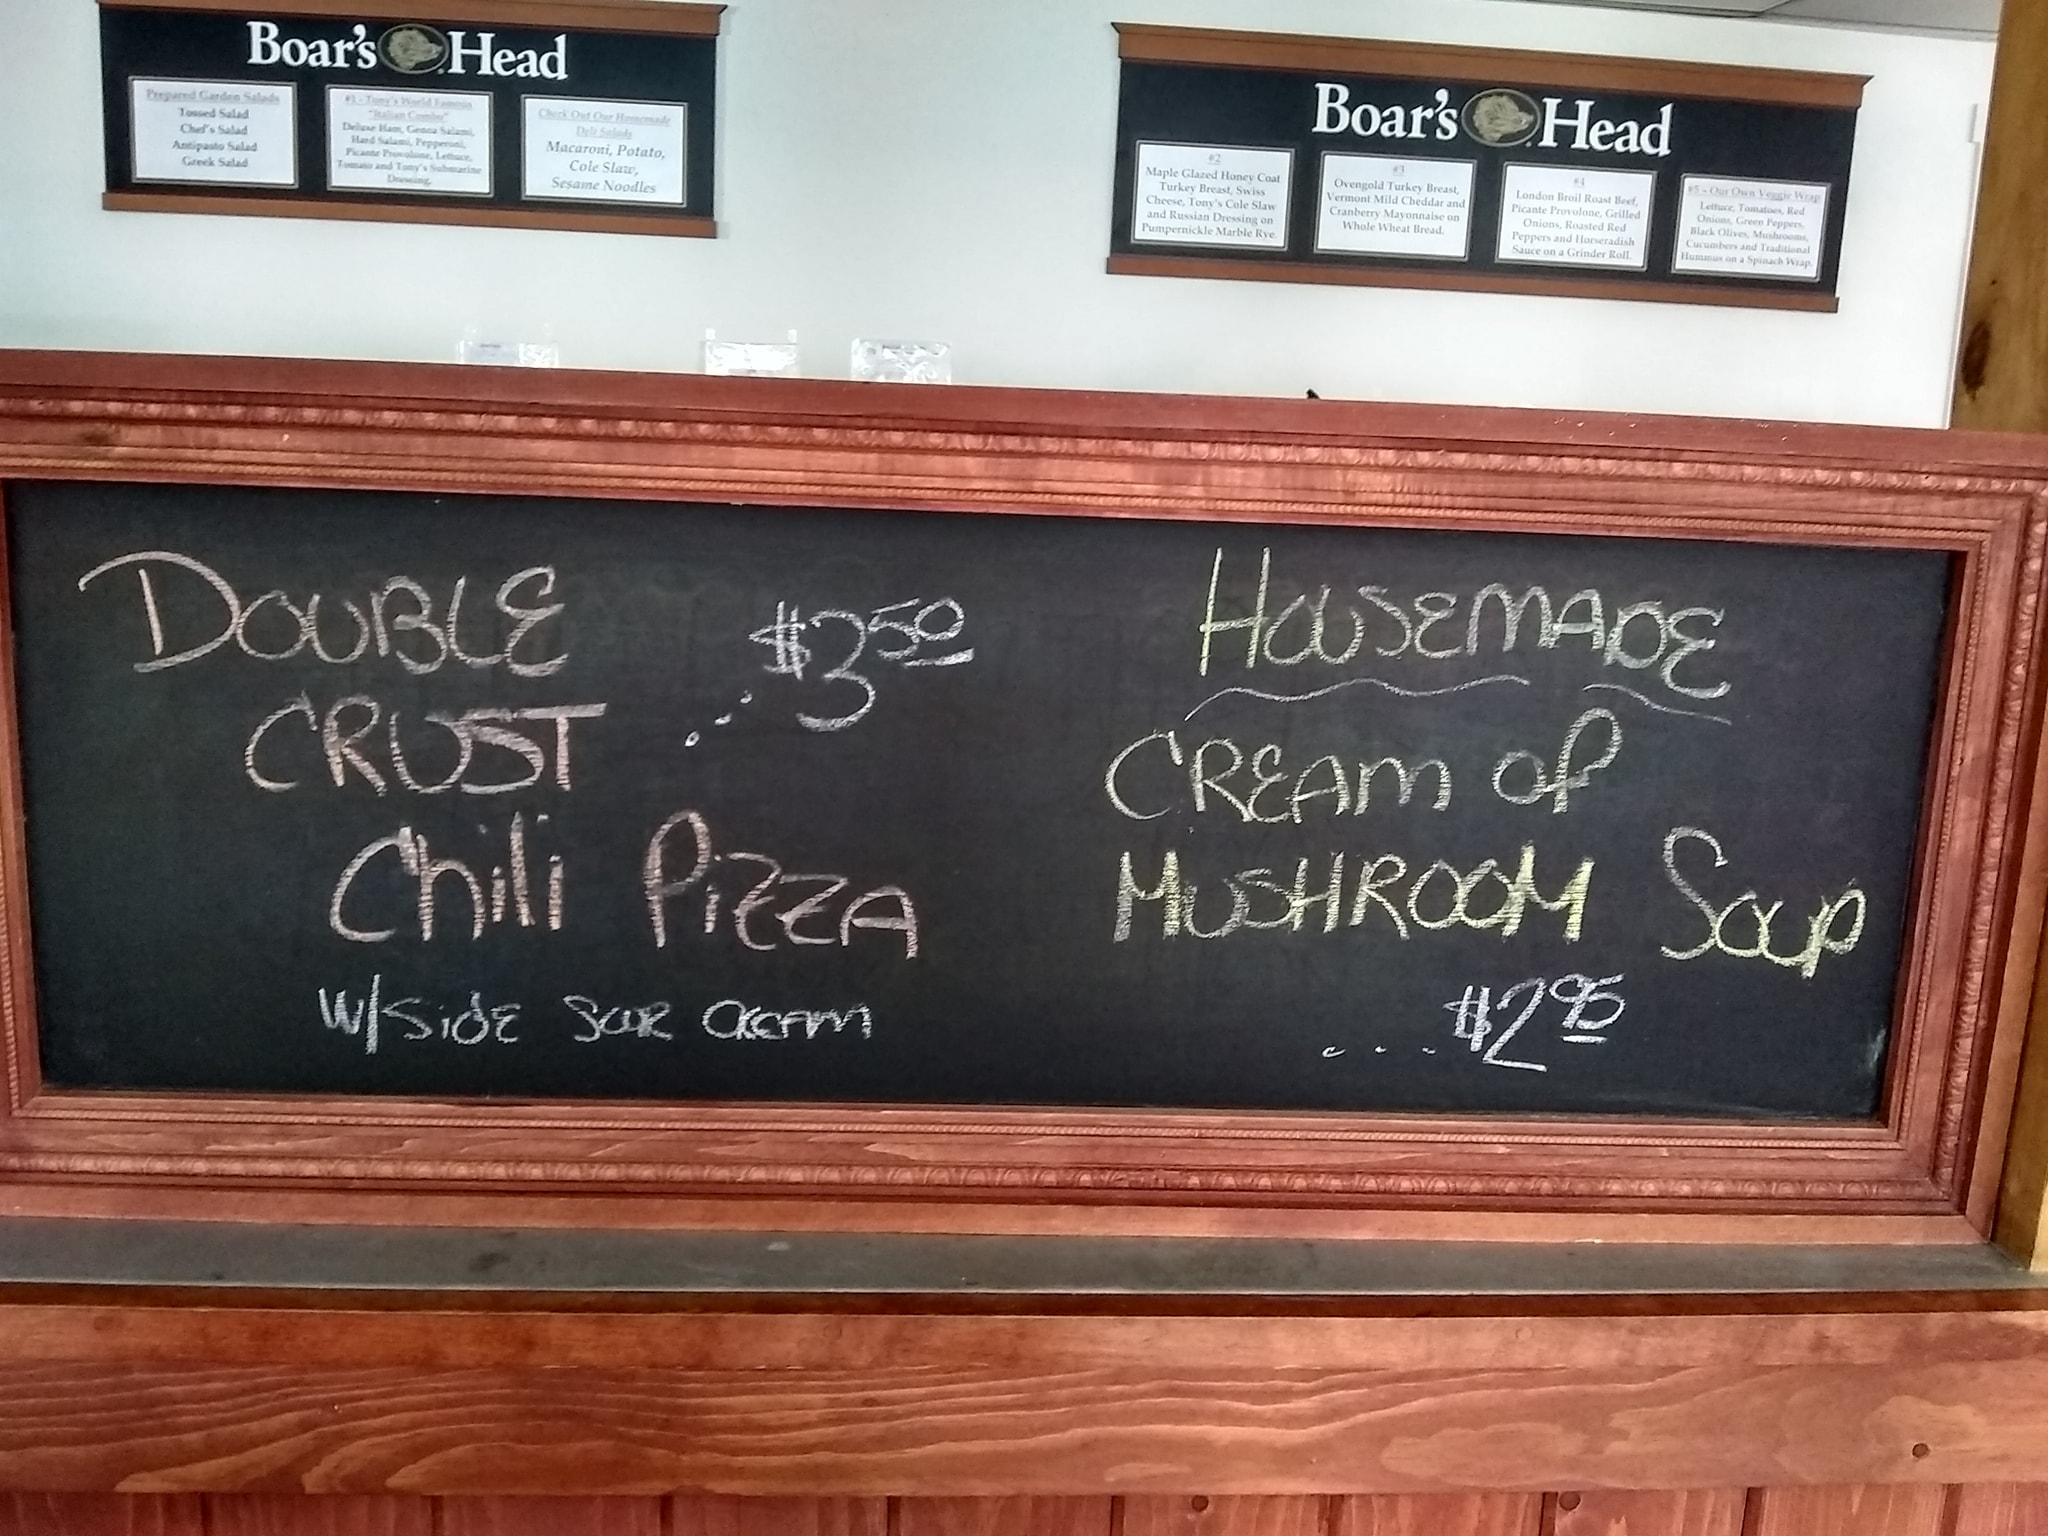 Boar's Head
Prepared Garden Salads
Tossed Salad
Chef's Salad
Antipasto Salad
Greek Salad
#1 - Tony's World Famous
"Italian Combo"
Deluxe Ham, Genoa Salami,
Hard Salami, Pepperoni,
Picante Provolone, Lettuce,
Tomato and Tony's Submarine
Dressing.
Check Out Our Homemade
Deli Salads
Macaroni, Potato,
Cole Slaw,
Sesame Noodles
Boar's Head
#2
Maple Glazed Honey Coat
Turkey Breast, Swiss
Cheese, Tony's Cole Slaw
and Russian Dressing on
Pumpernickle Marble Rye.
#3
Ovengold Turkey Breast,
Vermont Mild Cheddar and
Cranberry Mayonnaise on
Whole Wheat Bread.
#4
London Broil Roast Beef,
Picante Provolone, Grilled
Onions, Roasted Red
Peppers and Horseradish
Sauce on a Grinder Roll.
#5 - Our Own Veggie Wrap
Lettuce, Tomatoes, Red
Onions, Green Peppers,
Black Olives, Mushrooms,
Cucumbers and Traditional
Hummus on a Spinach Wrap.
DOUBLE
CRUST ... $3.50
Chili PiZZA
W/SidE SOUR CREAM
HOUSEMADE
CREAM OF
MUSHROOM SOUP
... $2.95